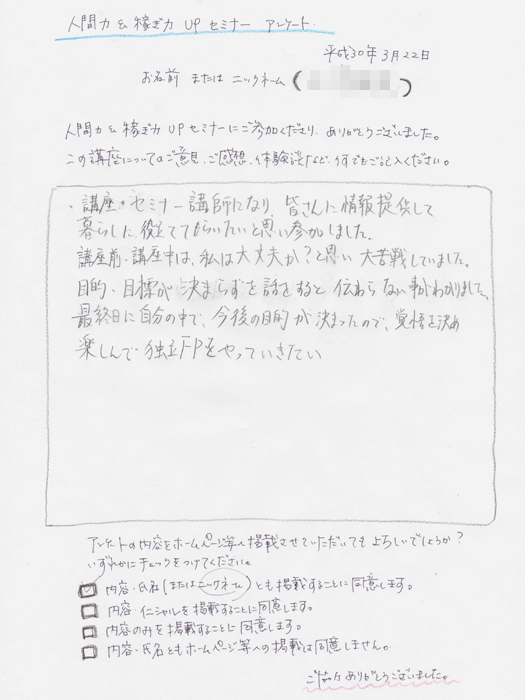 人間力 & 稼ぎ力 UP セミナー アンケート.
平成30年 3月22日
お名前 または ニックネーム ( )
人間力 & 稼ぎ力 UP セミナーにご参加くださり、ありがとうございました。
この講座についてのご意見、ご感想、体験談など、何でもご記入ください。
・講座・セミナー講師になり 皆さんに情報提供して
暮らしに役立ててもらいたいと思い参加しました。
講座前、講座中は、私は大丈夫か?と思い 大苦戦していました。
目的・目標が 決まらずを話をすると 伝わらない事がわかりました。
最終日に自分の中で、今後の目的が 決まったので、覚悟を決め
楽しんで 独立FPをやっていきたい
アンケートの内容をホームページ等へ掲載させていただいても よろしいでしょうか?
いずれかに チェックをつけてください。
内容・氏名(またはニックネーム)とも掲載することに同意します。
内容・イニシャルを掲載することに同意します。
内容のみを掲載することに 同意します。
内容・氏名ともホームページ等への掲載は同意しません。
ご協力 ありがとうございました。